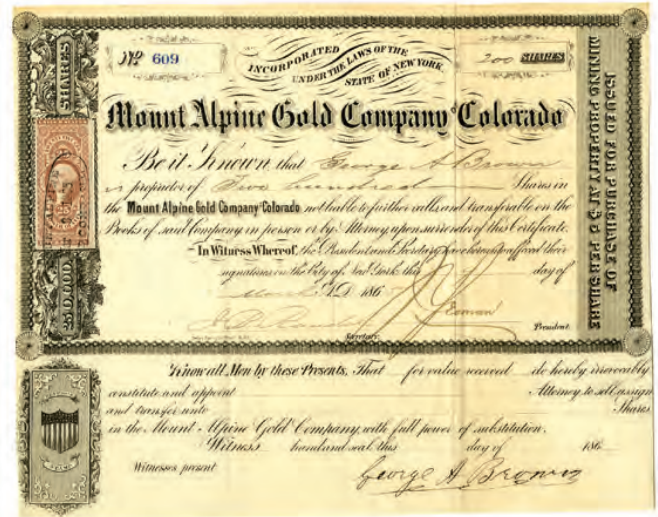 Nº 609
INCORPORATED
UNDER THE LAWS OF THE
STATE OF NEW YORK.
200 SHARES
SHARES
Mount Alpine Gold Company Colorado
Be it Known, that George A Brown
is proprietor of Two hundred Shares in
the Mount Alpine Gold Company Colorado not liable to further calls and transferable on the
Books of said Company in person or by Attorney, upon surrender of this Certificate.
In Witness Whereof, the President and Secretary have hereunto affixed their
signatures in the City of New York this day of
March A.D. 186
Yeoman
Secretary.
President.
50,000
ISSUED FOR PURCHASE OF
MINING PROPERTY AT $5 PER SHARE
Know all Men by these Presents, That for value received do hereby irrevocably
constitute and appoint Attorney to sell, assign
and transfer unto Shares
in the Mount Alpine Gold Company, with full power of substitution.
Witness hand and seal this day of 186
Witnesses present
George A Brown